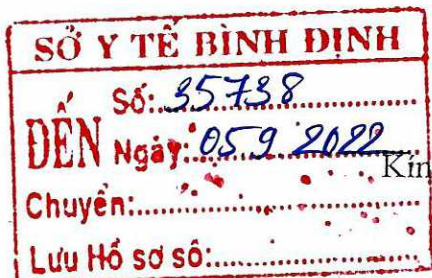 SỞ Y TẾ BÌNH ĐỊNH
ĐẾN
Số: 35738
Ngày: 05 9 2022
Kín
Chuyển:
Lưu Hồ sơ số: